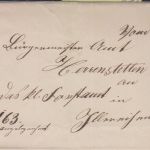 Vom
Bürgermeister Amt
Herrenstetten
an
das kl. Forstamt
in
Illereichen
163.